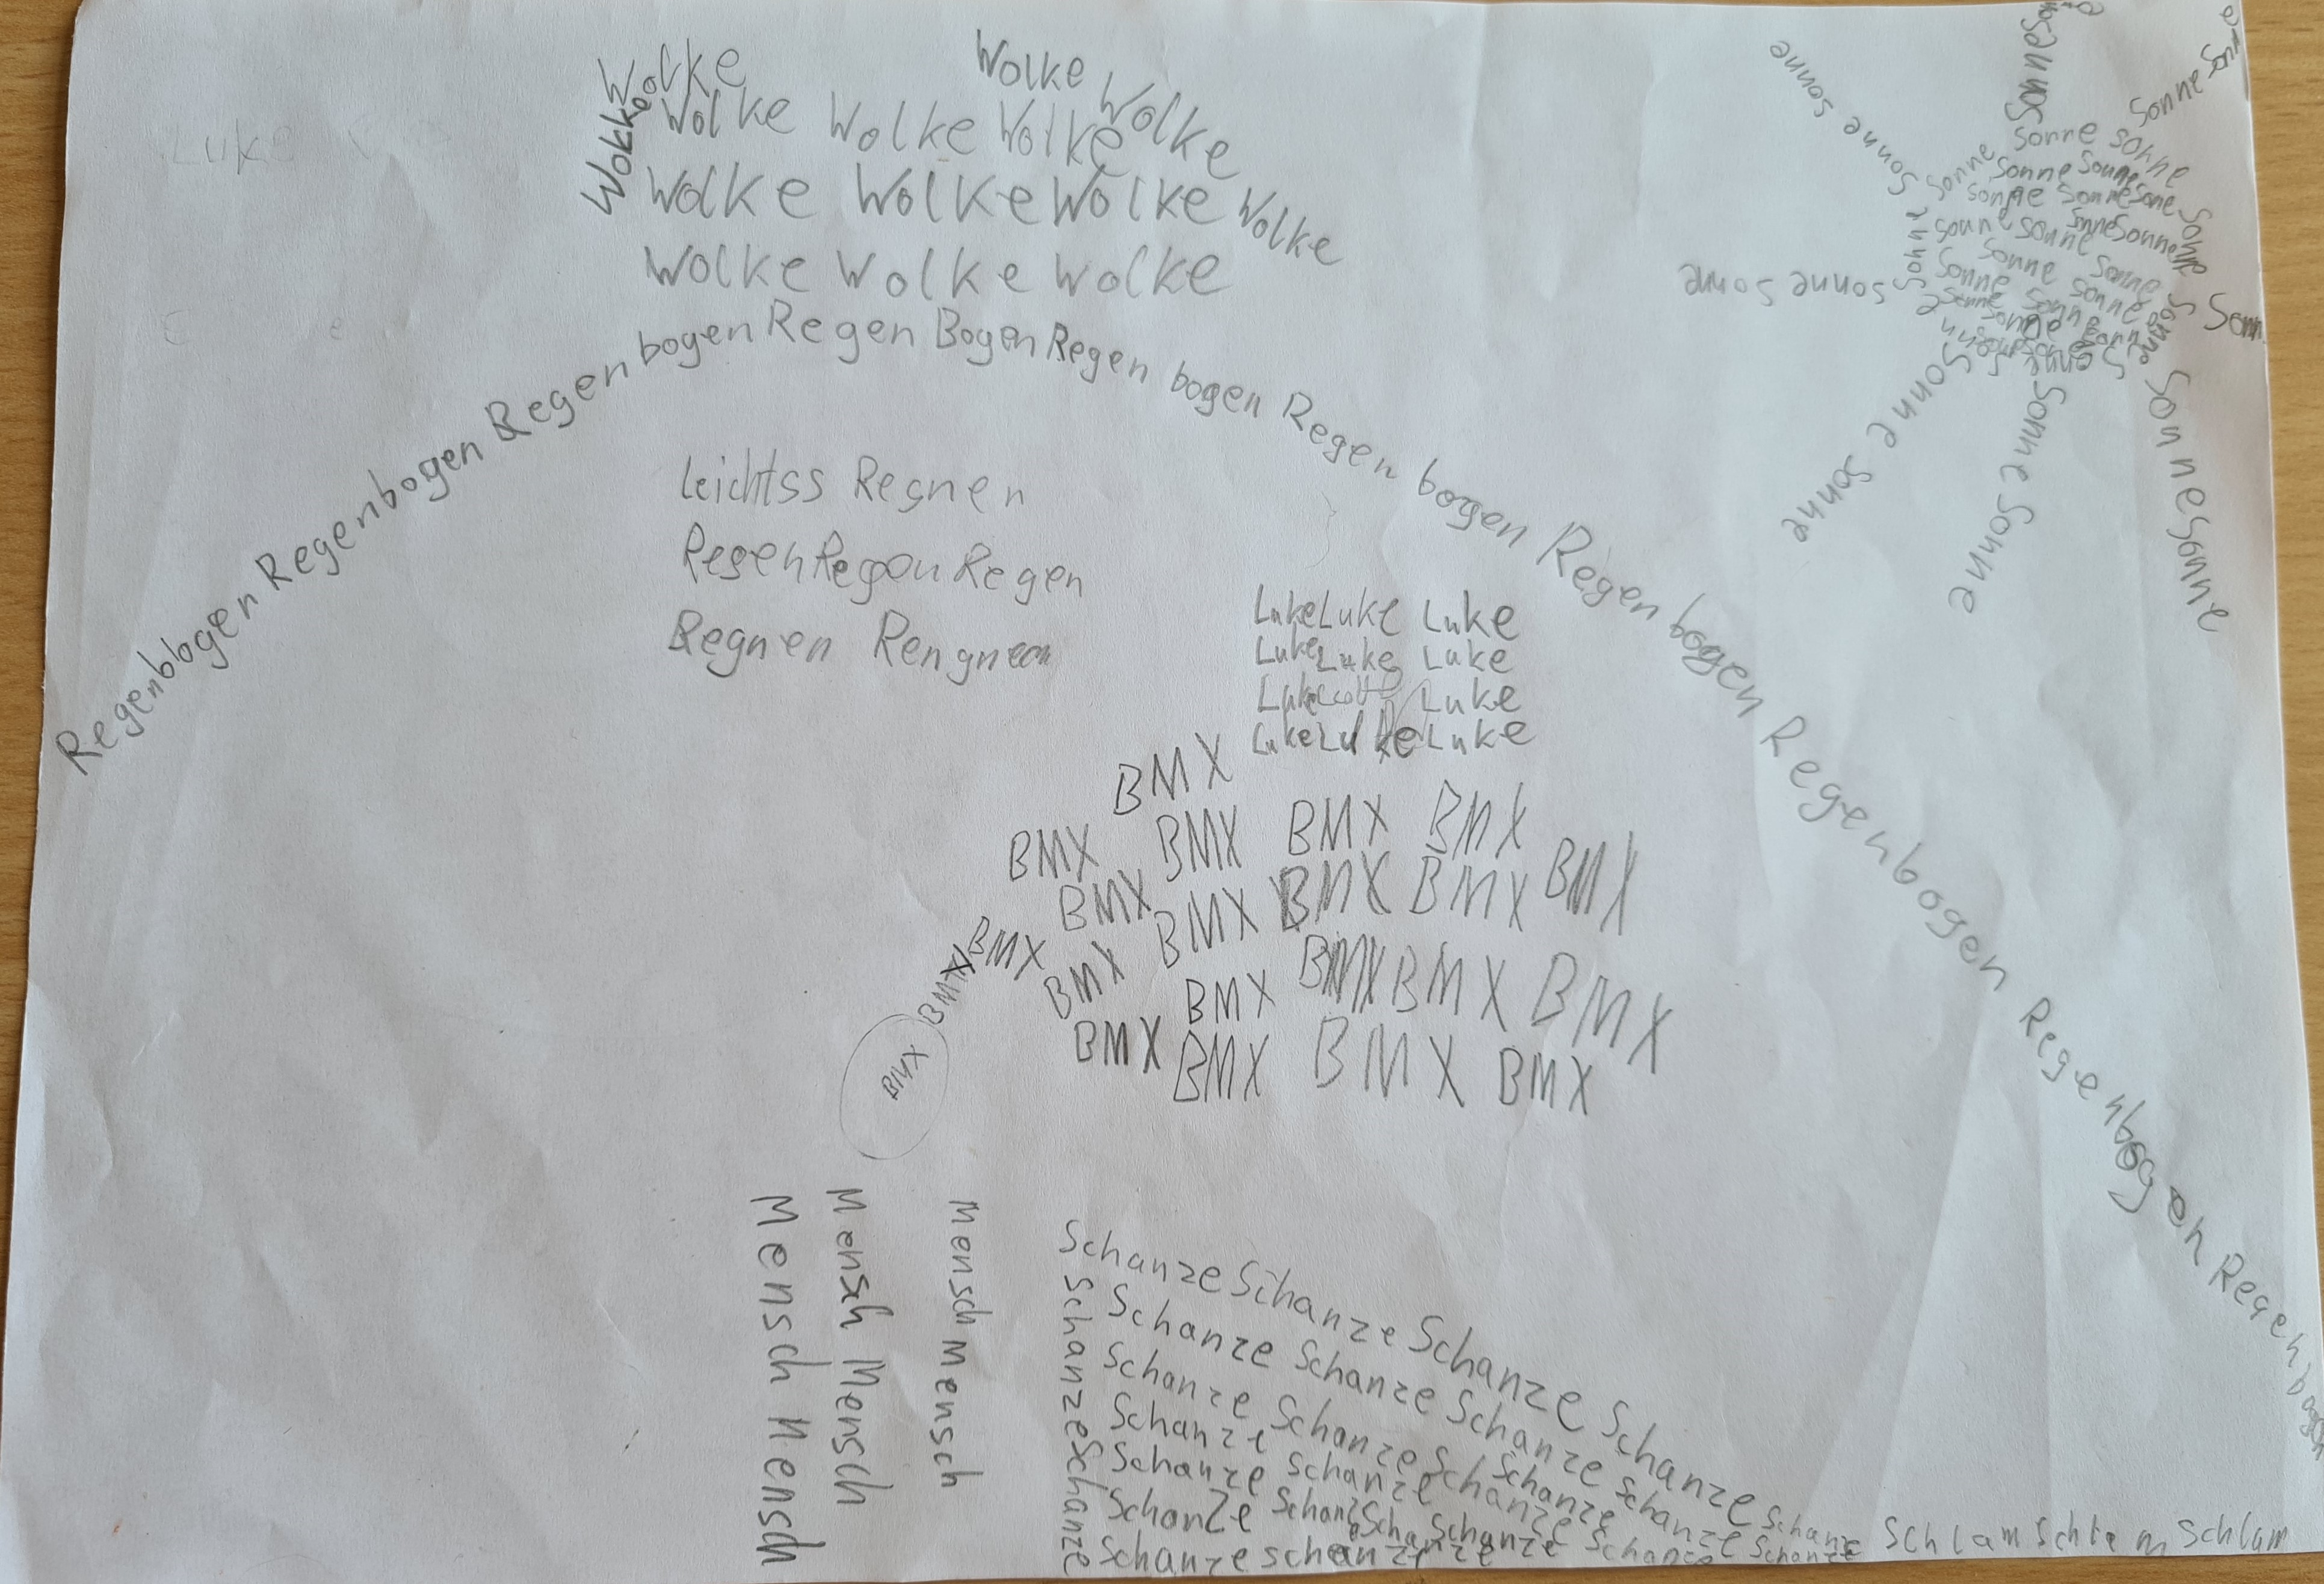 Wolke
Wolke
Wolke Wolke
Wolke Wolke Wolke
Wolke Wolke Wolke Wolke
Wolke Wolke Wolke
Luke
Regenbogen Regenbogen Regenbogen Regen Bogen Regenbogen Regenbogen Regenbogen Regenbogen Regenbogen Regen
sonne sonne sonne
Sonne
Sonne sonne
Sonne Sonne
Sonne Sonne
Sonne sonne
Sonne Sonne
sonne sonne
Sonne sonne
Sonne Sonne
Sonne Sonne
leichtss Regnen
Regen Regen Regen
Regnen
Luke Luke Luke
Luke Luke Luke
Luke Luke
Luke Luke Luke
BMX
BMX BMX BMX BMX
BMX BMX BMX BMX BMX
BMX BMX BMX BMX BMX BMX
BMX BMX
BMX BMX BMX BMX
BMX
Mensch Mensch
Mensch Mensch
Mensch Mensch
Schanze Schanze
Schanze Schanze Schanze Schanze Schanze
Schanze Schanze Schanze Schanze
Schanze Schanze Schanze
Schanze Schanze
Schanze Schanze
Schanze Schanze
Schanze
Schlam Schlam